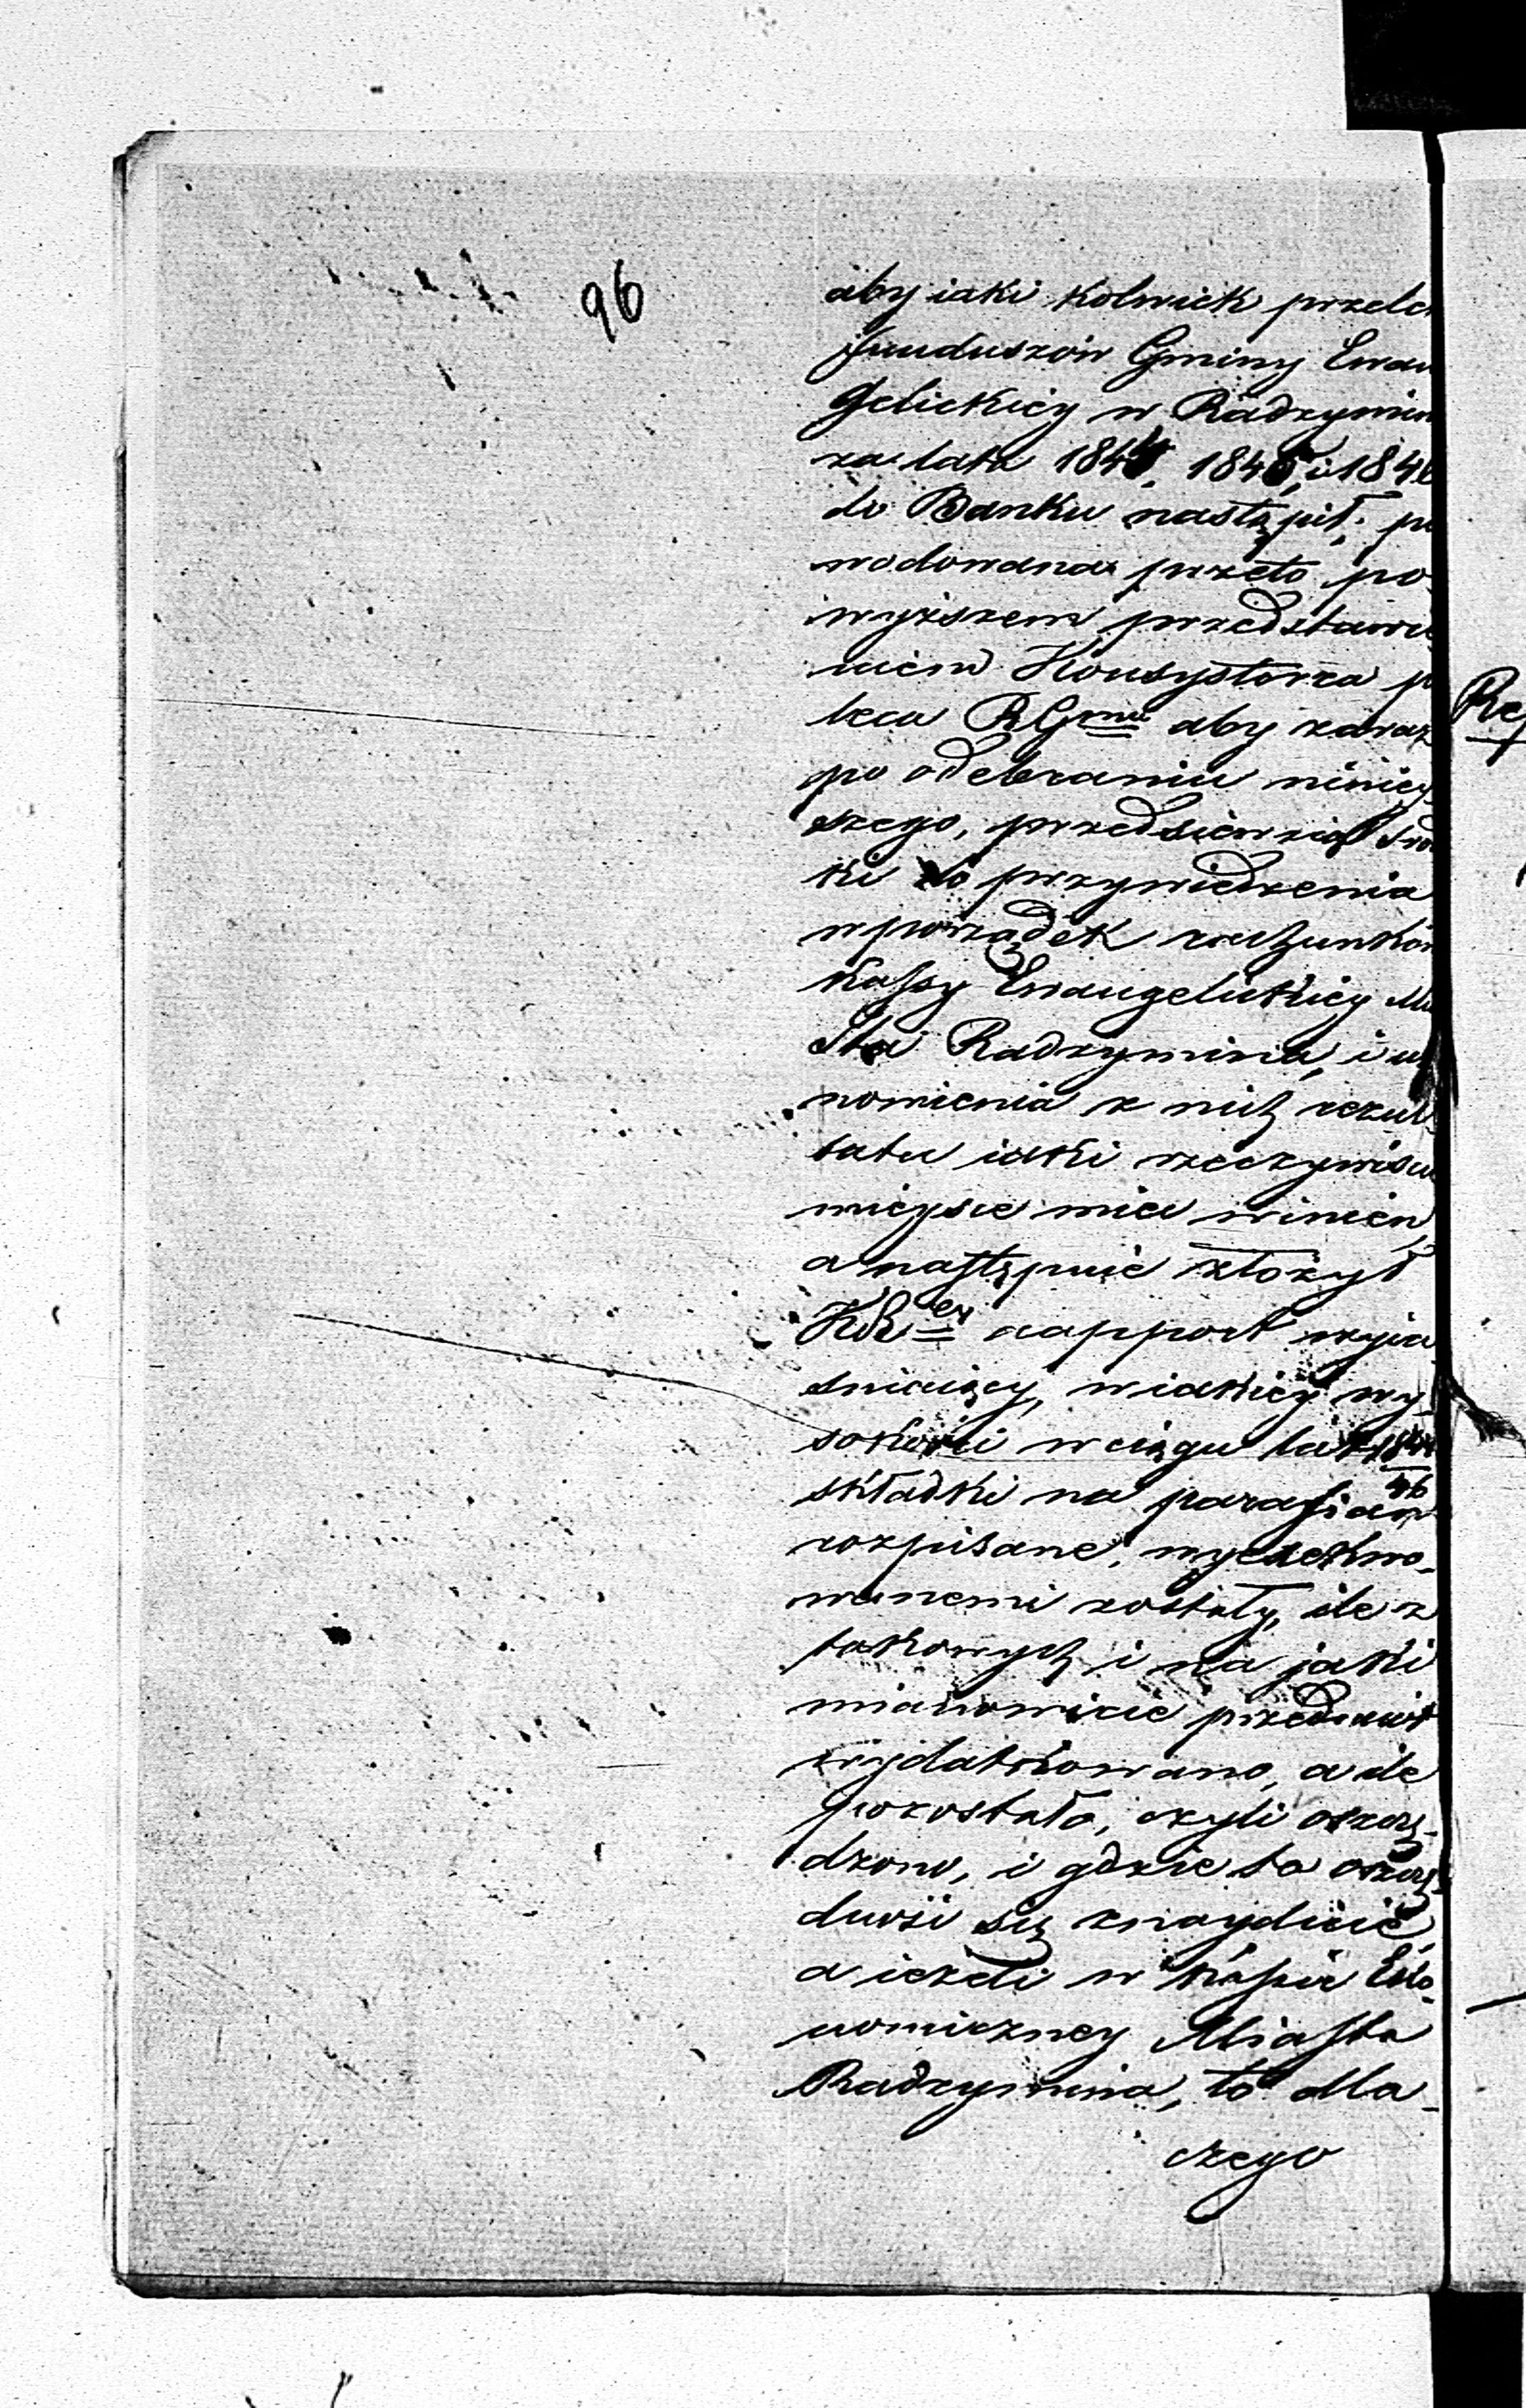 96
aby iaki kolwiek przele
funduszów Gminy Ewan
gelickiey w Radzymin
za lata 1844, 1845, i 1846
do Banku nastąpił; po
wodowana przeto po
wyższem przedstawie
niem Konsystorza po
leca RGnu aby zaraz
po odebraniu niniey
szego, przedsięwziął środ
ki do przywiedzenia
w porządek rachunków
kassy Ewangelickiey Mia
sta Radzymina, i
nowienia z nich rezul
tatu iaki rzeczywiście
mieysce mieć winien,
a następnie złożył
rapport wyia
śniaiący, w iakiey wy-
sokości w ciągu lat 1844
46
składki na parafian
rozpisane, wyexekwo-
wanemi zostały, ile z
takowych i na jaki
mianowicie przedmiot
wydatkowano, a ile
pozostało, czyli oszczę-
dzono, i gdzie ta oszczę
dność się znayduie,
a ieżeli w kassie Eko-
nomiczney Miasta
Radzymina, to dla-
czego
Re